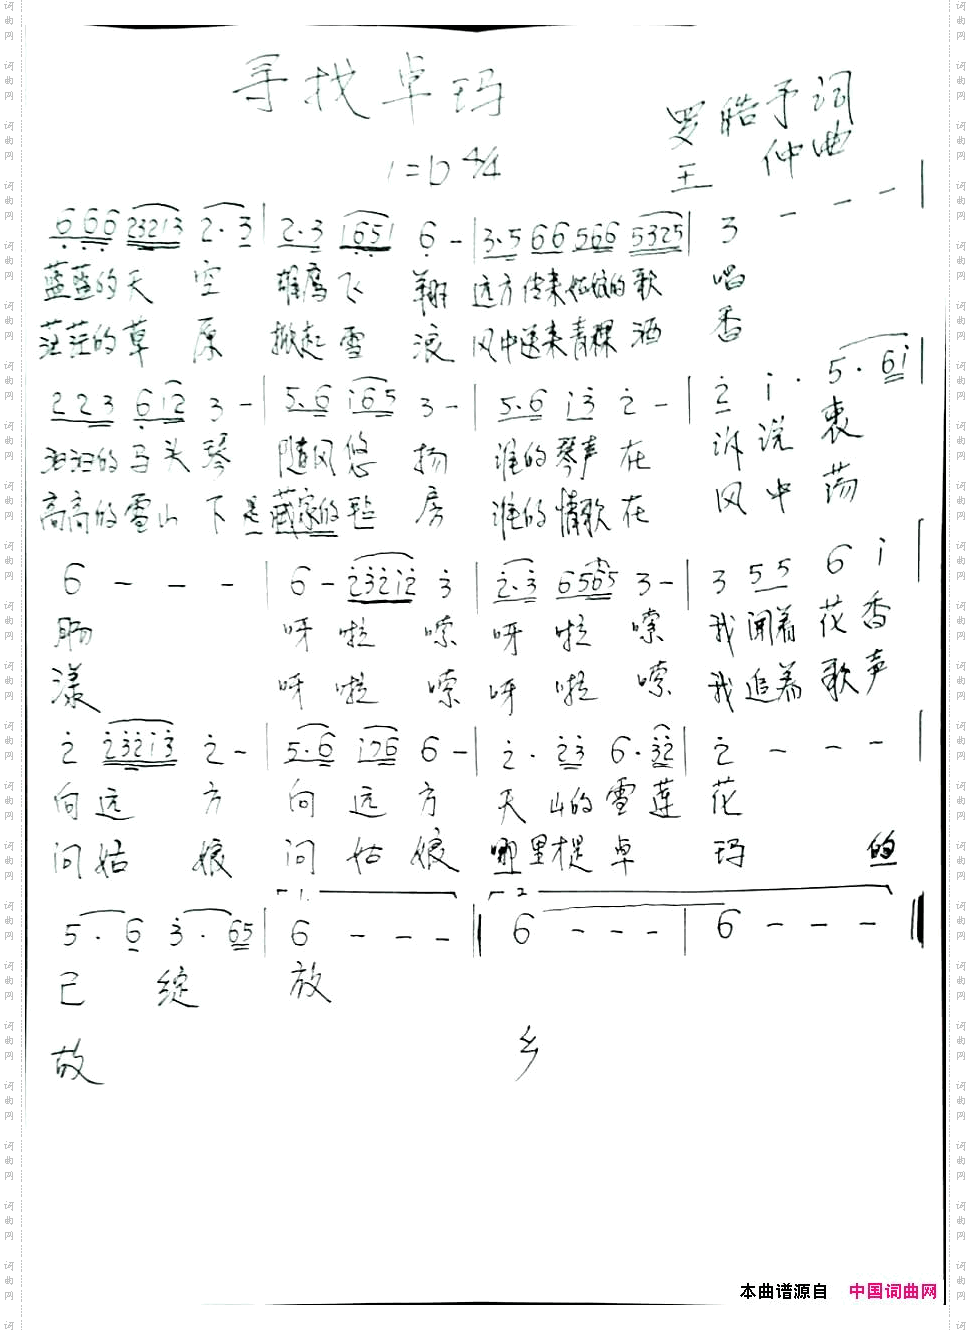 寻找卓玛
罗皓予词
1=D 4/4
王 仲曲
6 6 6 2 3 2 1 3 2·3 | 2·3 1 6 5 1 6 - | 3·5 6 6 5 6 6 5 3 2 5 | 3 - - - |
蓝蓝的天 空 雄鹰飞 翔 远方传来姑娘的歌 唱
茫茫的草 原 掀起雪 浪 风中送来青稞酒 香
2 2 3 6 1 2 3 - | 5·6 1 6 5 3 - | 5·6 1 3 2 - | 2 1· 5·6 1 |
的马头琴 随风悠 扬 谁的琴声 在 诉说 衷
高高的雪山 下是藏家的毡 房 谁的情歌 在 风中 荡
6 - - - | 6 - 2 3 2 1 2 3 | 2·3 6 5 6 5 3 - | 3 5 5 6 1 |
肠 呀 啦 嗦 呀 啦 嗦 我闻着 花香
漾 呀 啦 嗦 呀 啦 嗦 我追着 歌声
2 2 3 2 1 3 2 - | 5·6 1 7 6 6 - | 2· 2 3 6·3 2 | 2 - - - |
向远 方 向 远 方 天 山的雪莲 花
问姑 娘 问 姑 娘 哪里才是卓 玛 的
1. 2
5·6 3·6 5 | 6 - - - | 6 - - - | 6 - - - |
已 绽 放
故 乡
本曲谱源自 中国词曲网